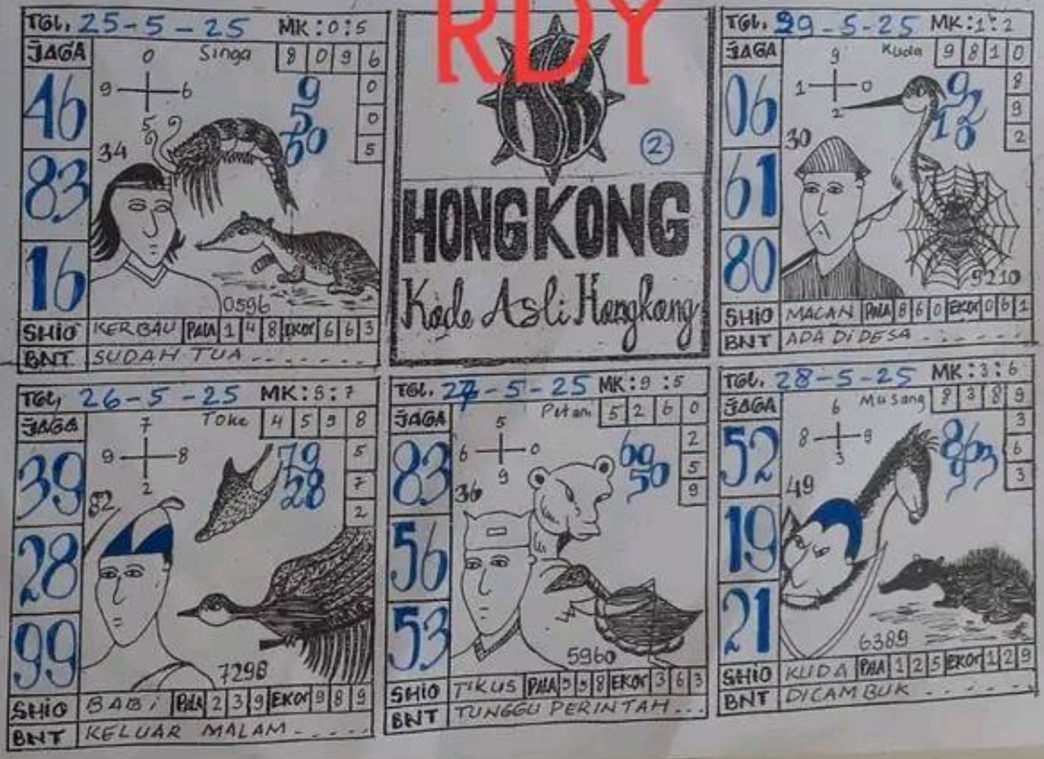 RDY
TGL, 25-5-25 MK:0:5
JAGA
46
83
16
0
9 6
5
Singa
8 0 9 6
0
0
5
9
5
60
34
0596
SHIO KERBAU PALA 1 4 8 EKOR 6 6 3
BNT SUDAH TUA.......
2
HONGKONG
Kode Asli Hongkong
TGL, 29-5-25 MK:1:2
JAGA
06
61
80
9
1 0
2
Kuda
9 8 1 0
8
9
2
30
9210
SHIO MACAN PALA 8 6 0 EKOR 0 6 1
BNT ADA DI DESA.......
TGL, 26-5-25 MK:5:7
JAGA
39
28
99
7
9 8
2
Toke
4 5 9 8
5
7
2
79
28
82
7298
SHIO BABI PALA 2 3 9 EKOR 9 8 9
BNT KELUAR MALAM.....
TGL, 27-5-25 MK:9:5
JAGA
83
56
53
5
6 0
9
Petani
5 2 6 0
2
5
9
69
50
36
5960
SHIO TIKUS PALA 5 5 8 EKOR 3 6 3
BNT TUNGGU PERINTAH...
TGL, 28-5-25 MK:3:6
JAGA
52
19
21
6
8 9
3
Musang
8 3 8 9
3
6
3
863
9
49
6389
SHIO KUDA PALA 1 2 5 EKOR 1 2 9
BNT DICAMBUK.......